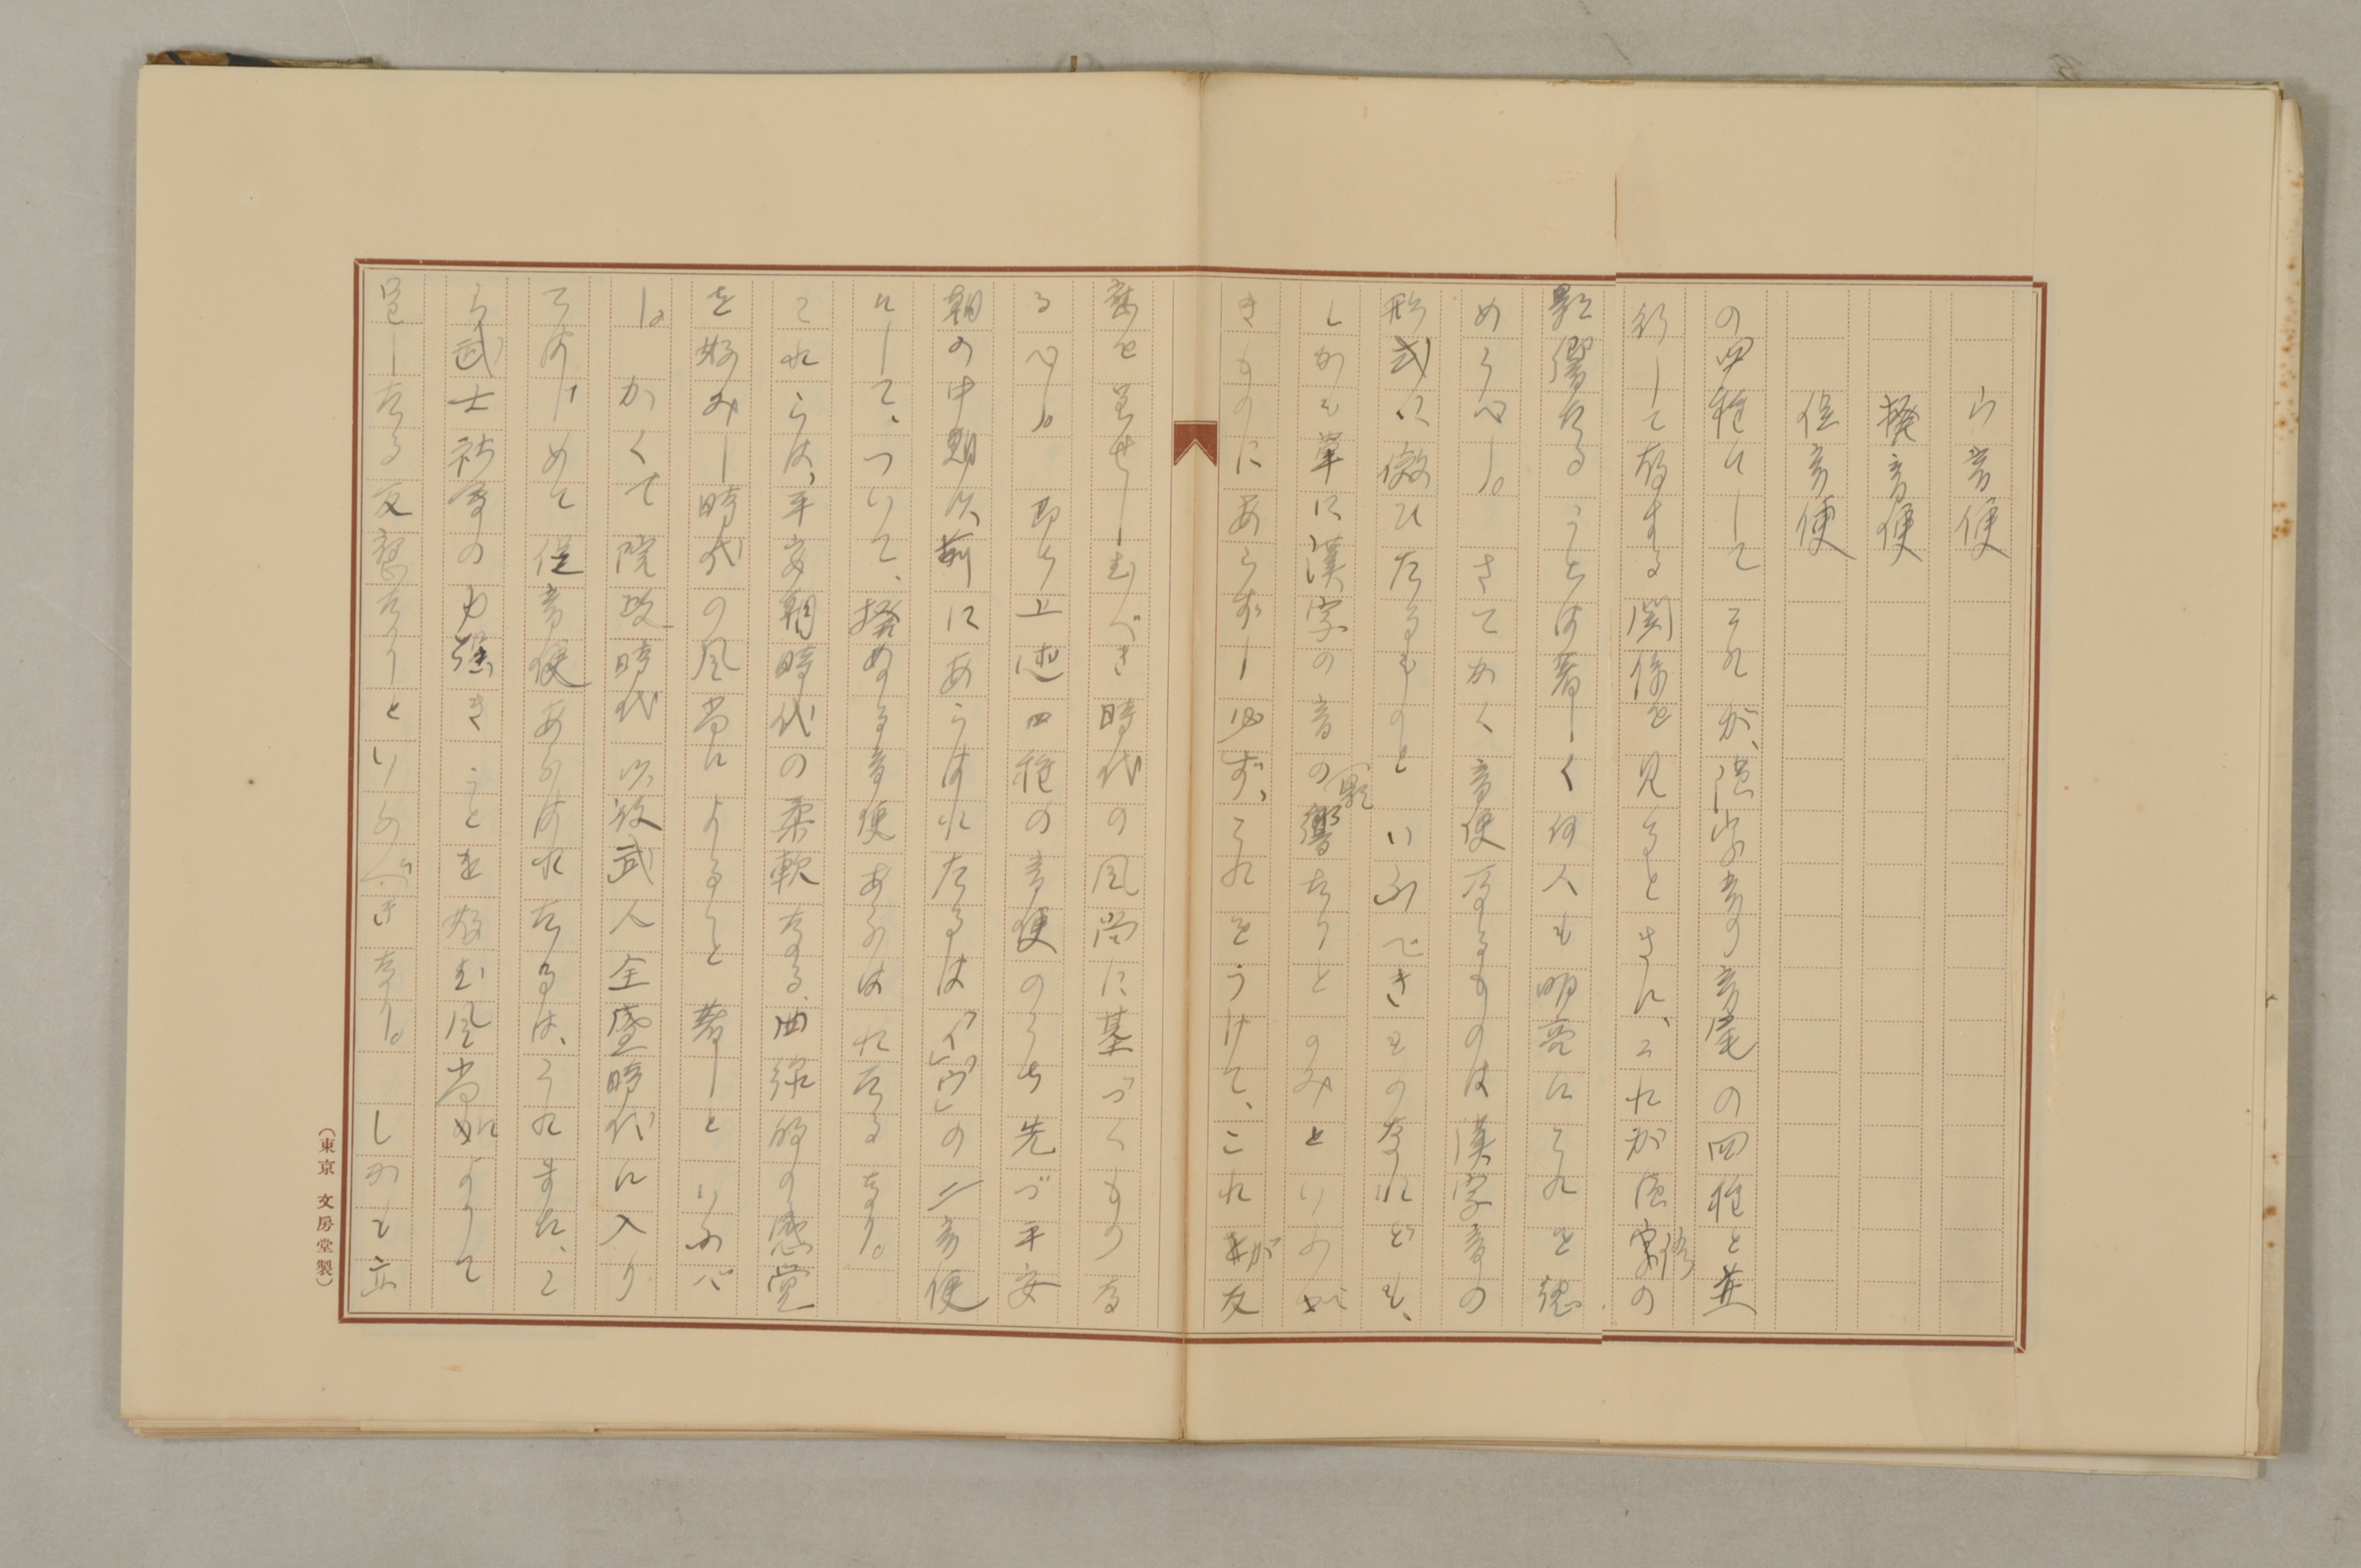 ウ音便
撥音便
促音便
の四種にしてそれが、漢字音の音尾の四種と並
行して存する関係を見るときに、これが漢字の
影響たることは著しく何人も明亮にそれを認
めうべし。さてかく音便なるものは漢字音の
形式に倣ひたるものといふべきものなれども、
しかも単に漢字の音の影響たりとのみといふが
きものにあらずし必ず、これをうけて、これが反
応を呈せしむべき時代の風尚に基づくものな
るべし。即ち上述四種の音便のうち先づ平安
朝の中期以前にあらはれたるは「イ」「ウ」の二音便
にして、ついで、撥ぬる音便あらはれたるなり。
これらは、平安朝時代の柔軟なる、曲線的の感覚
を好みし時代の風尚によること著しといふべ
し。かくて院政時代以後武人全盛時代に入り
てはじめて促音便あらはれたるは、これまた、こ
ら武士社会の力強きことを好む風尚によりて
呈したる反応なりといふべきなり。しかも立
(東京 文房堂製)